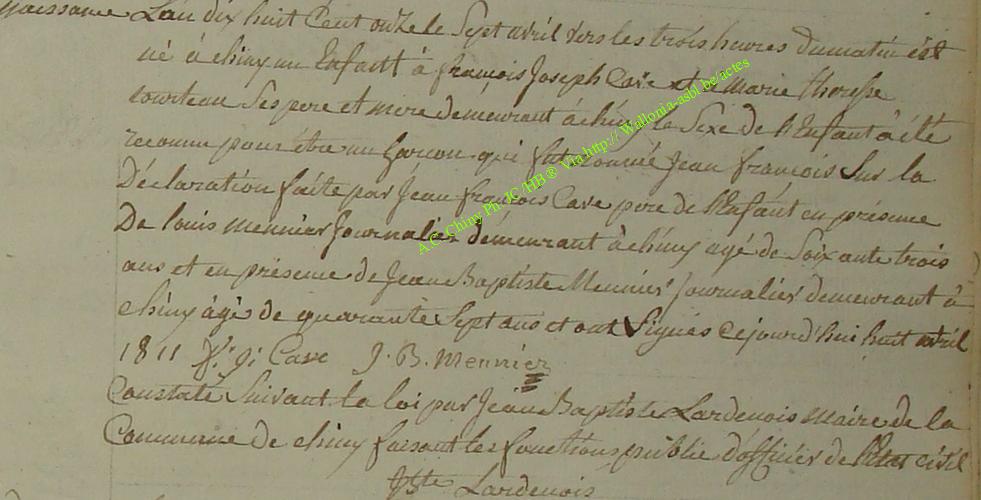 naissance L'an dix huit Cent onze le Sept avril vers les trois heures du matin est
né à chiny un Enfant à françois Joseph Cave et à Marie therese
tourteau Ses pere et mere demeurant à chiny le Sexe de l'Enfant à été
reconnu pour être un Garcon qui fut nommé Jean francois Sur la
Déclaration faite par Jean francois Cave pere de l'Enfant en présence
De louis Mennier Journalier démeurant à chiny agé de Soixante trois
ans et en présence de Jean Baptiste Mennier journalier demeurant à
chiny âgé de quarante Sept ans et ont Signés cejourd'hui huit avril
1811 Cave J. B. Mennier
Constaté Suivant la loi par Jean Baptiste Lardenois Maire de la
Commune de chiny faisant les fonctions publie d'officier de l'Etat civil
Lardenois
A.C. Chiny Ph. JC/HB® Via http://Wallonia-asbl.be/actes